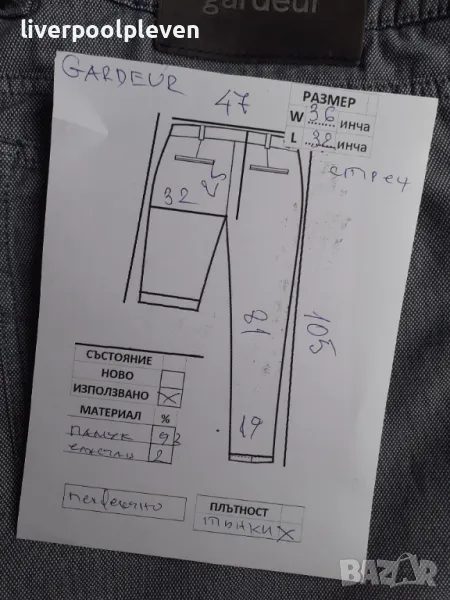 liverpoolpleven
gardeur
GARDEUR
47
РАЗМЕР
W 36 инча
L 32 инча
стреч
32
25
81
105
19
СЪСТОЯНИЕ
НОВО
ИЗПОЛЗВАНО X
МАТЕРИАЛ %
ПАМУК 98
еластан 2
перфектно
ПЛЪТНОСТ
тънки X
BAZAR